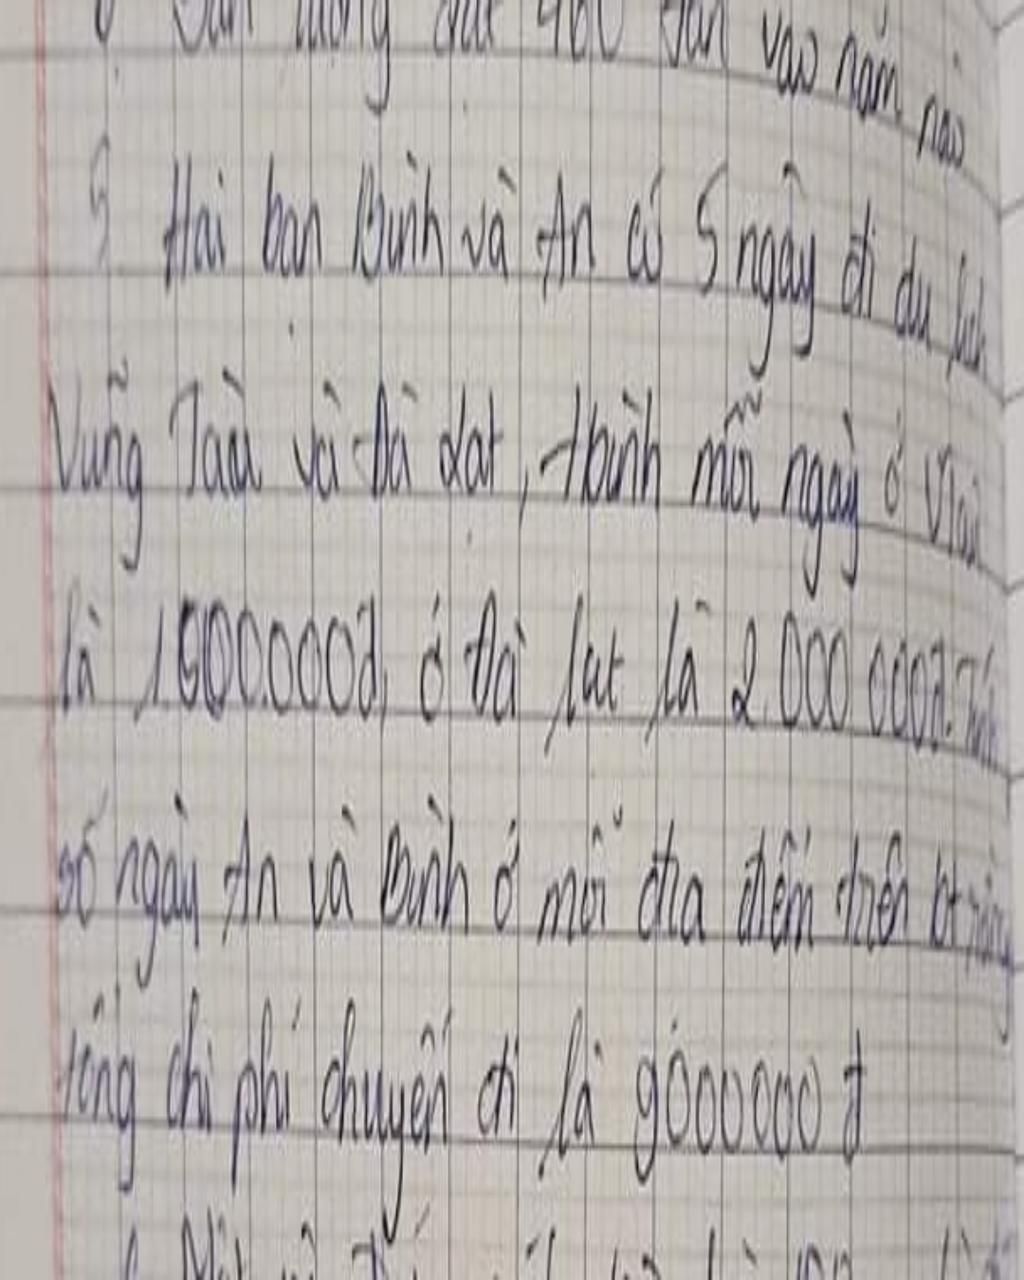 lượng đạt 460 tấn vào năm nào
5 Hai bạn Bình và An có 5 ngày đi du lịch
Vũng Tàu và Đà Lạt, tbình mỗi ngày ở Vtàu
là 1.500.000đ, ở Đà lạt là 2.000 000đ. Tính
số ngày An và Bình ở mỗi địa điểm trên bt rằng
tổng chi phí chuyến đi là 9000000 đ